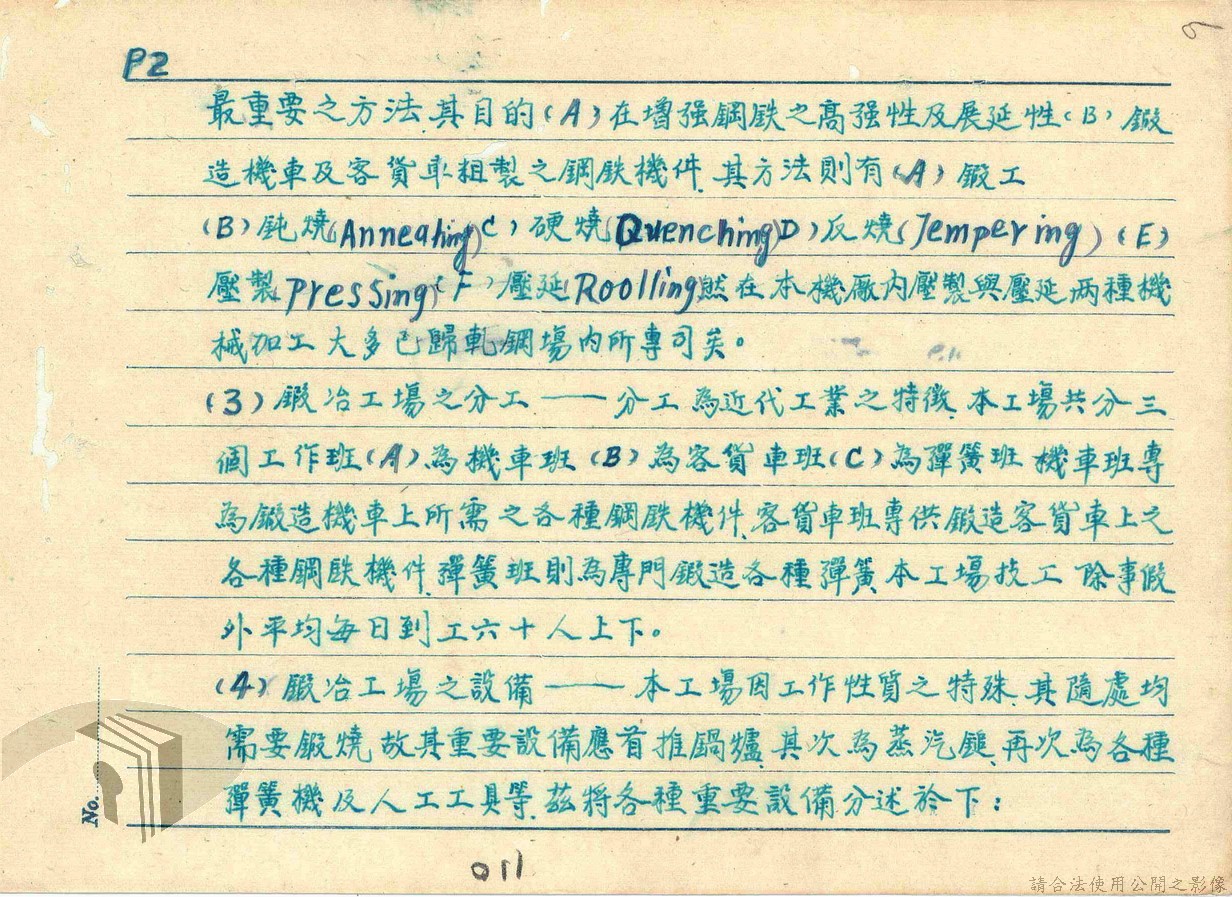 P2
最重要之方法.其目的(A)在增强鋼鉄之高强性及展延性(B)鍛
造機車及客貨車粗製之鋼鉄機件.其方法則有(A)鍛工
(B)鈍燒(Annealing)C)硬燒(Quenching)D)反燒(Tempering)(E)
壓製pressing)(F)壓延(Roolling)然在本機廠內壓製與壓延两種機
械加工大多已歸軋鋼場內所專司矣。
(3)鍛冶工場之分工——分工為近代工業之特徵.本工場共分三
個工作班(A)為機車班(B)為客貨車班(C)為彈簧班 機車班專
為鍛造機車上所需之各種鋼鉄機件.客貨車班專供鍛造客貨車上之
各種鋼鉄機件.彈簧班則為專門鍛造各種彈簧.本工場技工 除事假
外平均每日到工六十人上下。
(4)鍛冶工場之設備——本工場因工作性質之特殊.其隨處均
需要鍛燒故其重要設備應首推鍋爐.其次為蒸汽鎚.再次為各種
彈簧機及人工工具等.茲將各種重要設備分述於下:
No.
011
請合法使用公開之影像